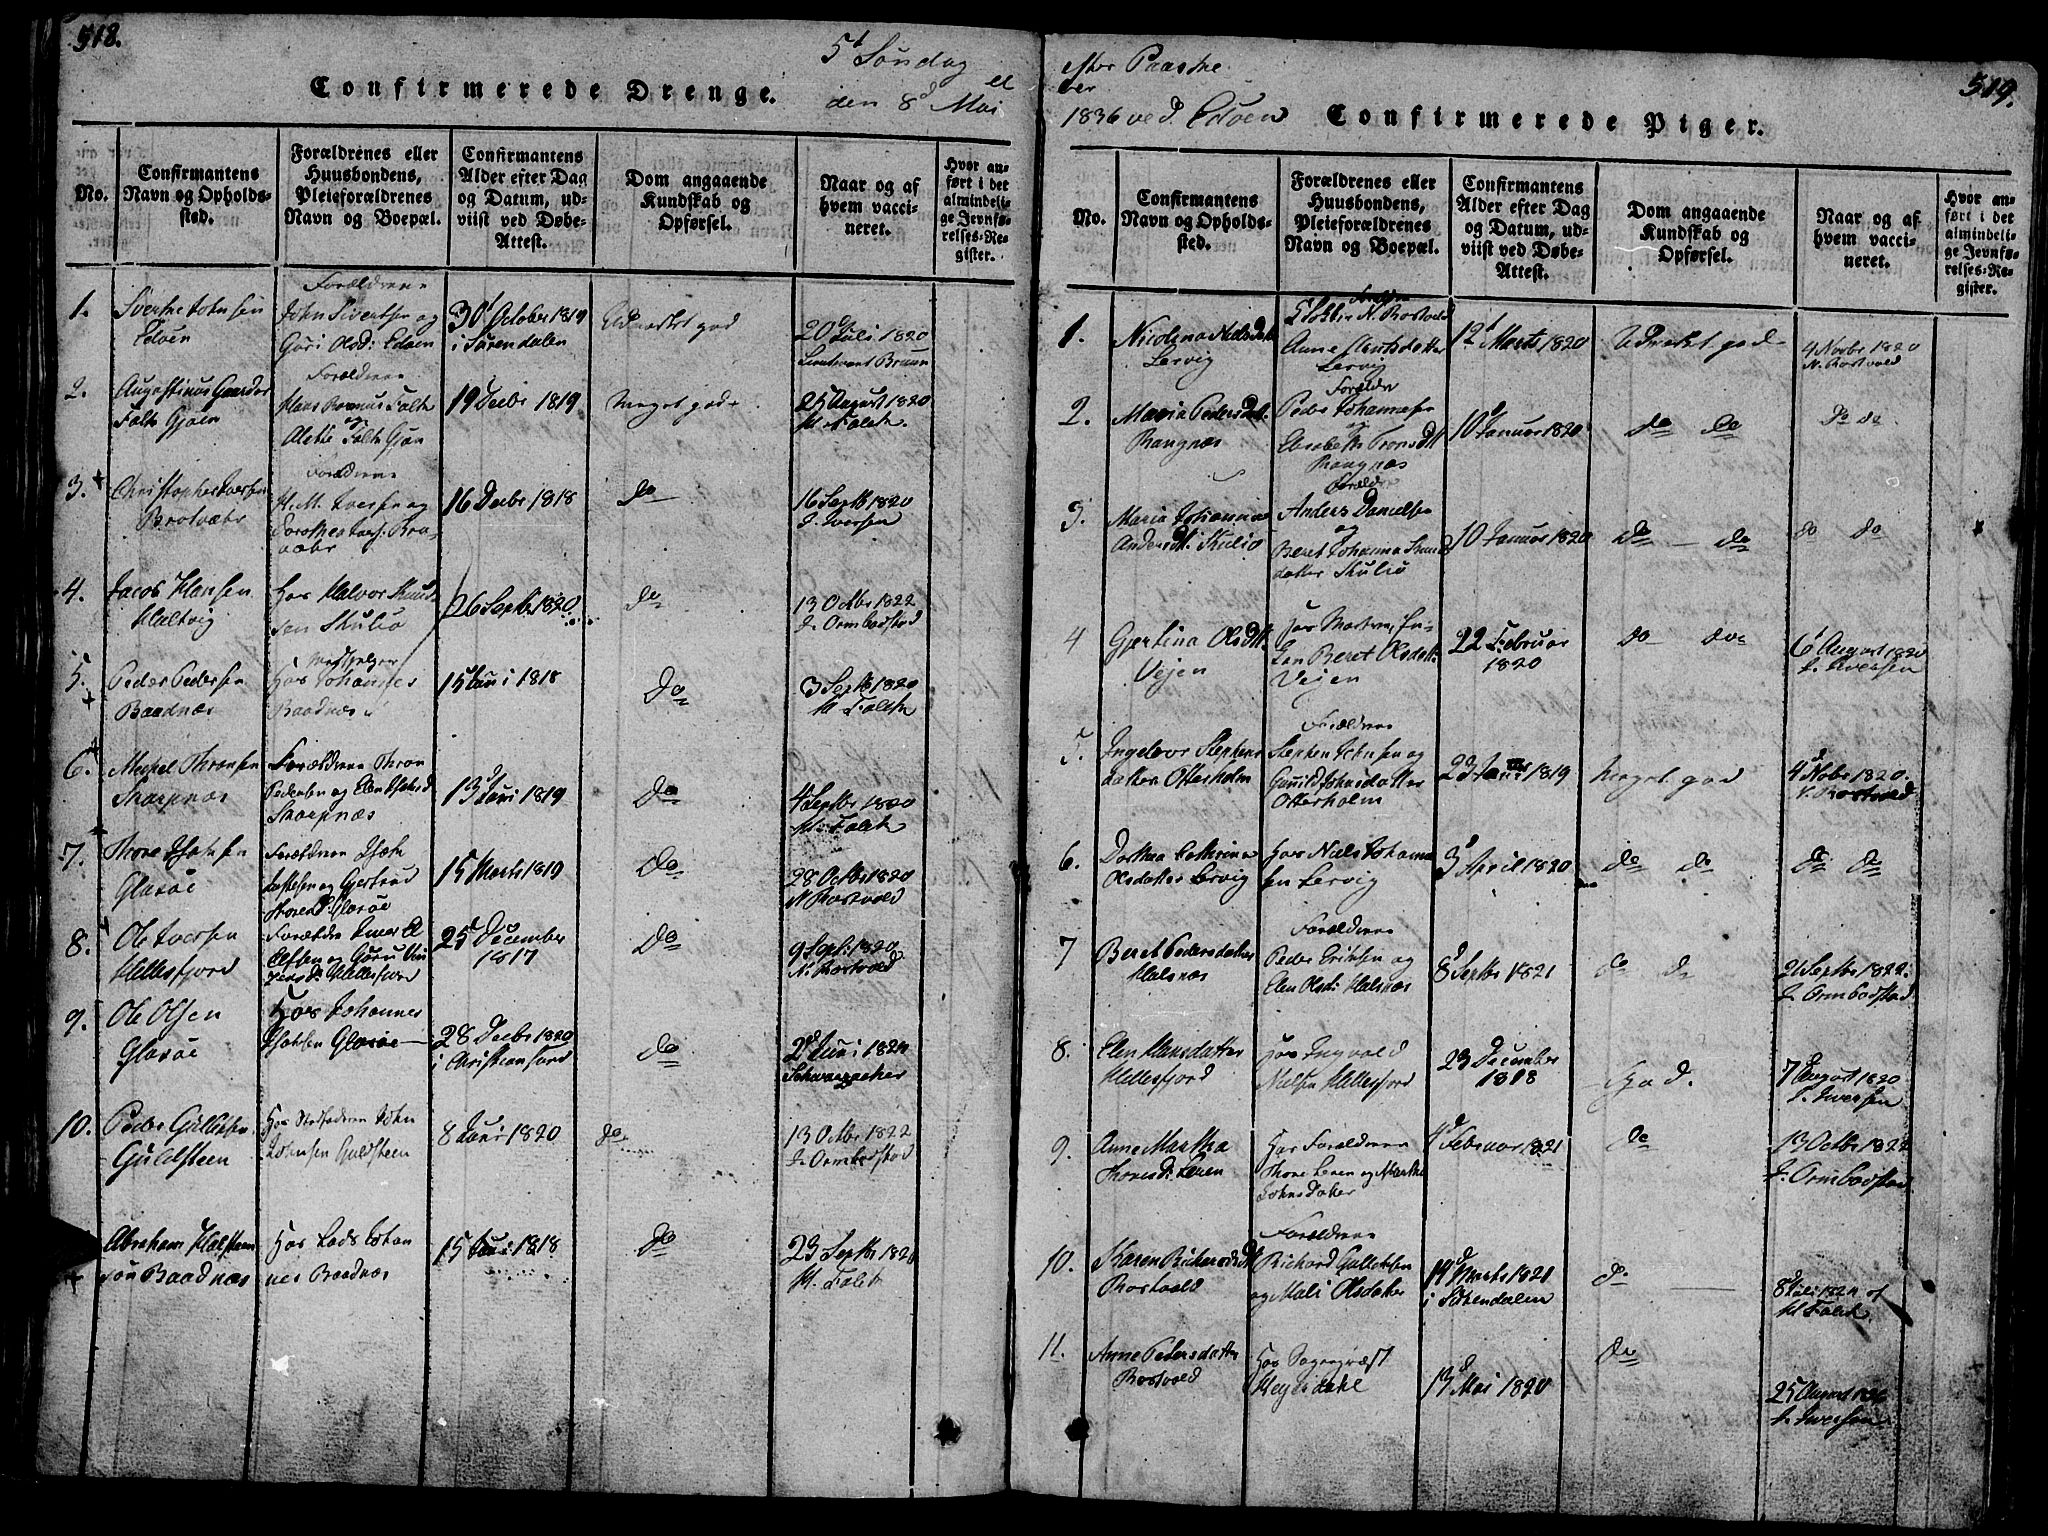 518.
5t Søndag
den 8d Mai
Confirmerede Drenge.
No.
Confirmantens
Navn og Opholds-
sted.
Forældrenes eller
Huusbondens,
Pleieforældrenes
Navn og Boepæl.
Confirmantens
Alder efter Dag
og Datum, ud-
viist ved Døbe-
Attest.
Dom angaaende
Kundskab og
Opførsel.
Naar og af
hvem vacci-
neret.
Hvor an-
ført i det
almindeli-
ge Jevnfø-
relses-Re-
gister.
1.
Edøen
Forældrene
John Sivertsen og
Guri Olsd: Edøen
30 October 1819
i Surendalen
Udmærket god
20 Juli 1820
Lieutenant Bruun
2.
Augustinus
Falch Gjøen
Forældrene
Hans Rasmus Falch
og
Alette Falch
19 Decbr 1819
Meget god
25 August 1820
H. Falch
3.
Christopher Iversen
Forældrene
Iversen og
16 Decbr 1818
do
16 Septb 1820
J. Iversen
4.
Jacob Hansen
Hos Halvor Knud-
sen Skuliø
26 Septb 1820
do
13 Octbr 1822
J. Ormbostad
5.
Peder Pedersen
Baadnæs
Hos Johannes
Baadnæs
15 Juni 1818
do
3 Septb 1820
H. Falch
6.
Thronsen
Skarpnæs
Forældrene Thron
Pedersen og Elen
Skarpnæs
13 Juni 1819
do
4 Septbr 1820
H. Falch
7.
Thore
Glasøe
Forældrene
og Gjertrud
Glasøe
15 Marts 1819
do
28 Octbr 1820
N. Rostvold
8.
Ole Iversen
Hellesfjord
Forældre Iver
Hellesfjord
25 December
1817
do
9 Sept: 1820
N. Rostvold
9.
Ole Olsen
Glasøe
Hos Johannes
Glasøe
28 Decbr 1820
i Christiansund
do
2 Juni 1821
10.
Peder Gullesen
Guldsteen
Hos John
Johnsen Guldsteen
8 Juni 1820
do
13 Octbr 1822
J. Ormbostad
Abraham
Baadnæs
Hos Johan
nes Baadnæs
15 Juni 1818
do
23 Septbr 1820
H. Falch
519.
efter Paaske
1836 ved Edøen
Confirmerede Piger.
No.
Confirmantens
Navn og Opholds-
sted.
Forældrenes eller
Huusbondens,
Pleieforældrenes
Navn og Boepæl.
Confirmantens
Alder efter Dag
og Datum, ud-
viist ved Døbe-
Attest.
Dom angaaende
Kundskab og
Opførsel.
Naar og af
hvem vacci-
neret.
Hvor an-
ført i det
almindeli-
ge Jevnfø-
relses-Re-
gister.
1.
Nicolina Nielsdtr
Lervig
N. Rostvold
Anne
Lervig
12 Marts 1820
Udmærket god
4 Novbr 1820
N. Rostvold
2.
Maria Pedersdtt.
Rangnæs
Forældre
Peder Johannesen
og
Elisabeth Tronsdtt
Rangnæs
10 Januar 1820
do do
do do
3.
Maria Johanna
Andersdtt. Skuliø
Forældre
Anders Danielsen
og
Beret Johanna
datter Skuliø
10 Januar 1820
do — do
do do
4
Gjertina Olsdtt.
Vejen
Hos Moderen, En-
ken Beret Olsdatt.
Veien
22 Februar
1820
do do
6 August 1820
J. Iversen
5.
Ingebor Stephens
datter Otterholm
Forældrene
Stephen Johnsen og
Gunild Johnsdatter
Otterholm
23 1819
Meget god
4 Nobr 1820.
N. Rostvold
6.
Dorthea Cathrina
Olsdatter Lervig
Hos Niels Johann
sen Lervig
3 April 1820
do do
do do
7
Beret Pedersdatter
Halsnæs
Forældrene
Peder Eriksen og
Elen Olsd: Halsnæs
8 Septbr 1821
do do
21 Septbr 1822.
J. Ormbostad
8.
Elen Hansdatter
Hellesfjord
Hos Ingvald
Nielsen Hellesfjord
23 December
1818
God.
7 August 1820
J. Iversen
9.
Anne Martha
Thoresd: Leren
Hos Forældrene
Thore Leren og Martha
Johnsdatter
4 Februar 1821
do
13 Octbr 1822
J. Ormbostad
10.
Karen Richardsdt
Rostvold
Forældrene
Richard Gullichsen
og Mali Olsdatter
19 Marts 1821
i Surendalen
do
8 Juli 1821 af
H. Falch
11.
Anne Pedersdatter
Rostvold
Hos Sognepræst
Hejerdahl
13 Mai 1820
do
25 August 1820
J. Iversen